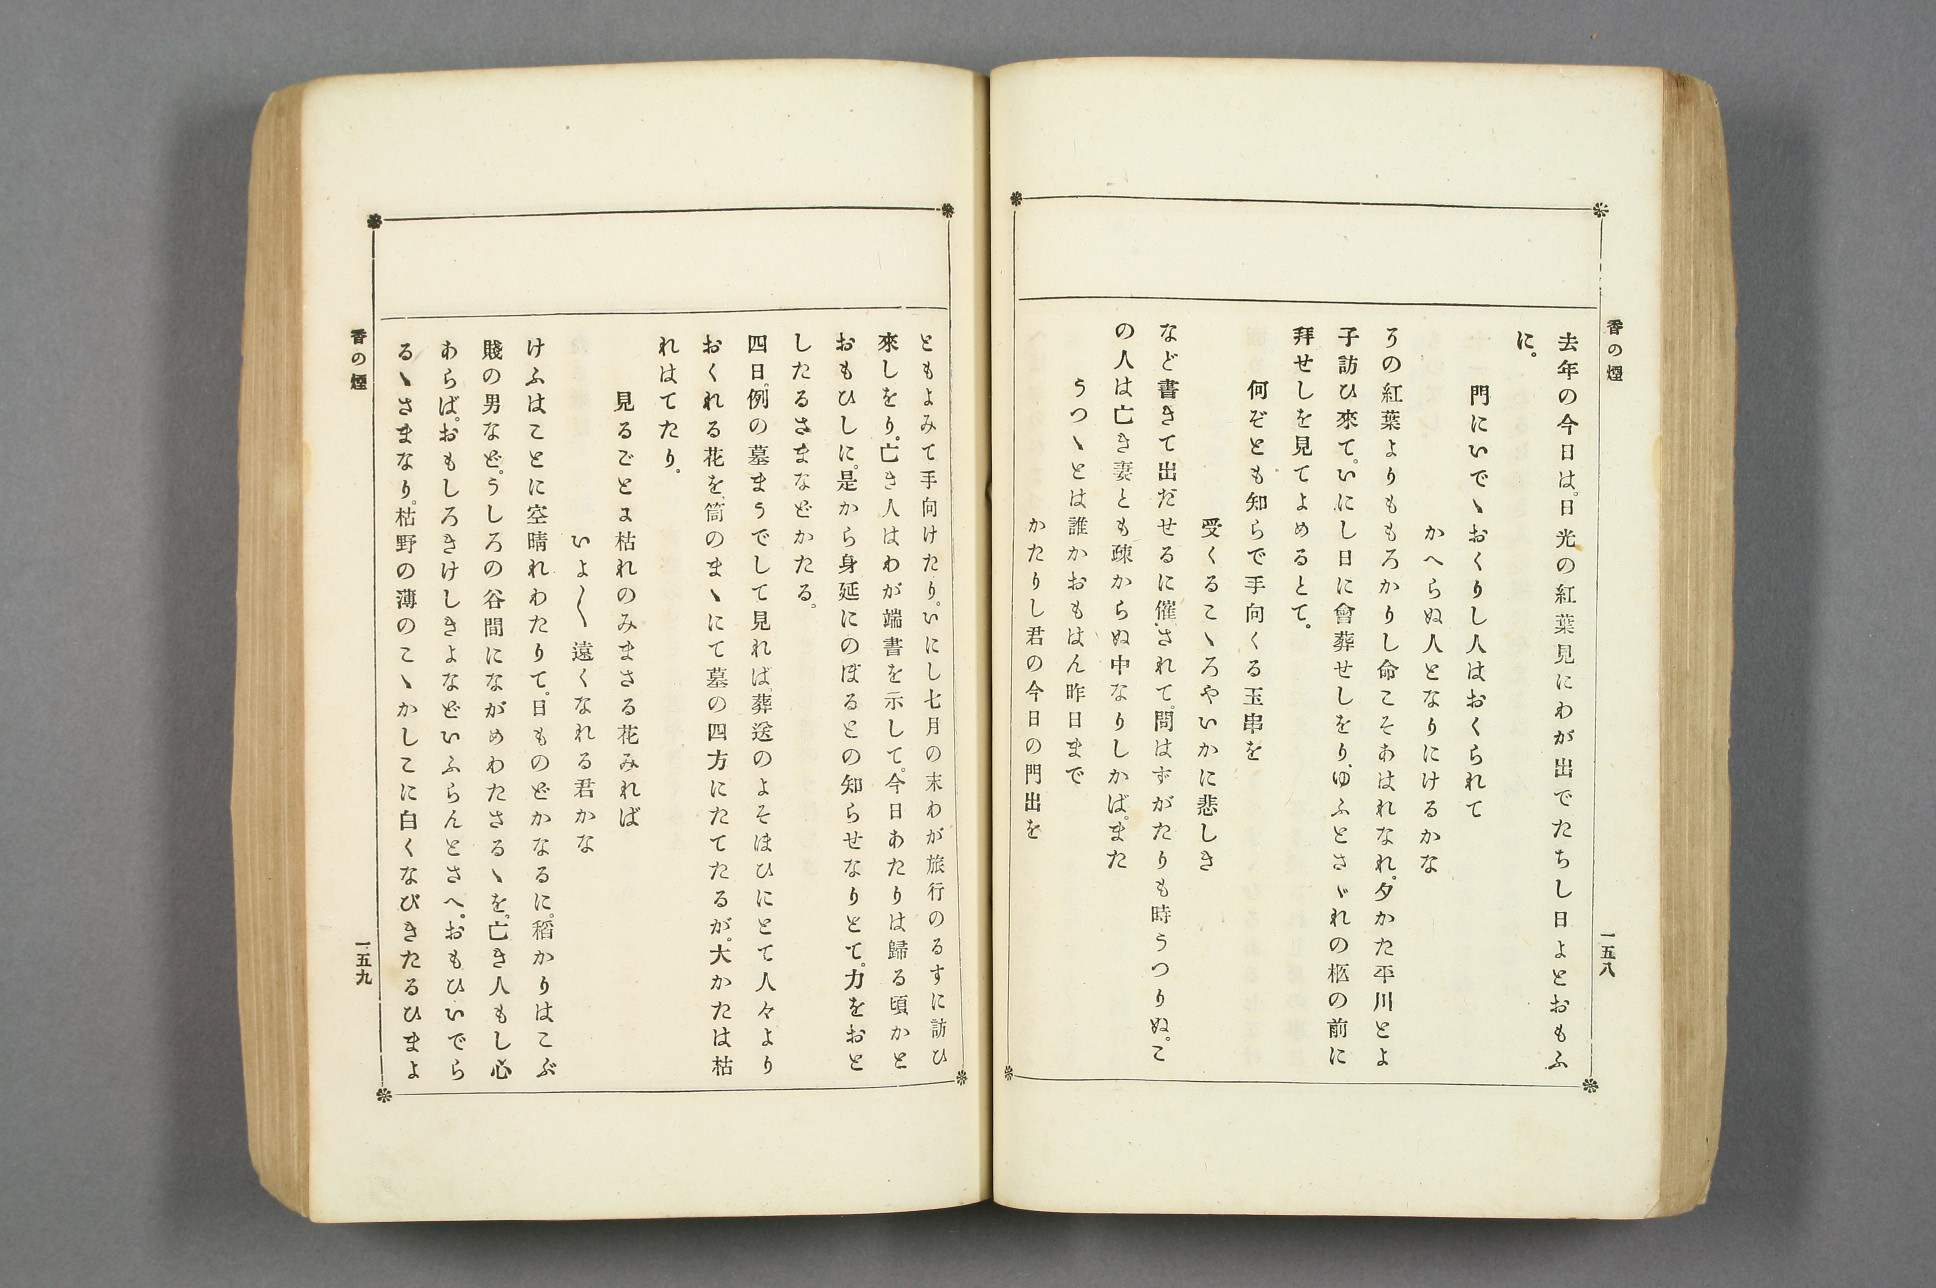 香の煙
一五八
去年の今日は。日光の紅葉見にわが出でたちし日よとおもふ
に。
門にいでゝおくりし人はおくられて
かへらぬ人となりにけるかな
りの紅葉よりももろかりし命こそあはれなれ。夕かた平川とよ
子訪ひ來て。いにし日に會葬せしをり、ゆふとさゞれの柩の前に
拜せしを見てよめるとて。
何ぞとも知らで手向くる玉串を
受くるこゝろやいかに悲しき
など書きて出だせるに催されて。問はずがたりも時うつりぬ。こ
の人は亡き妻とも疎からぬ中なりしかば。また
うつゝとは誰かおもはん昨日まで
かたりし君の今日の門出を
ともよみて手向けたり。いにし七月の末わが旅行のるすに訪ひ
來しをり。亡き人はわが端書を示して。今日あたりは歸る頃かと
おもひしに。是から身延にのぼるとの知らせなりとて。力をおと
したるさまなどかたる。
四日。例の墓まうでして見れば、葬送のよそほひにとて人々より
おくれる花を、筒のまゝにて墓の四方にたてたるが。大かたは枯
れはてたり。
見るごとに枯れのみまさる花みれば
いよ〳〵遠くなれる君かな
けふはことに空晴れわたりて。日ものどかなるに。稻かりはこぶ
賤の男など。うしろの谷間にながめわたさるゝを。亡き人もし心
あらば。おもしろきけしきよなどいふらんとさへ。おもひいでら
るゝさまなり。枯野の薄のこゝかしこに白くなびきたるひまよ
香の煙
一五九